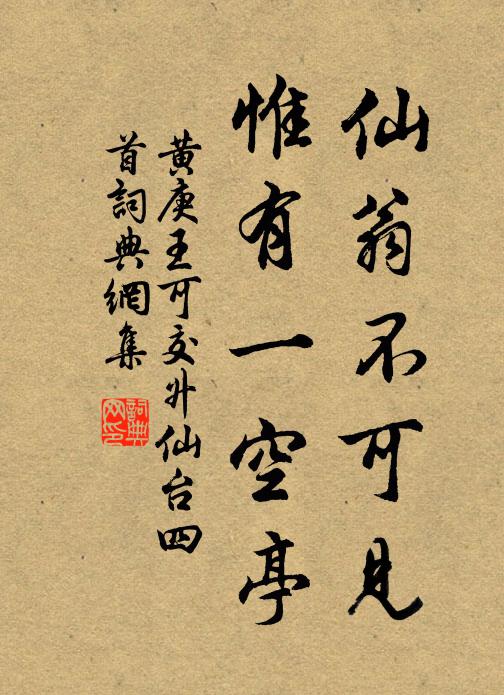 仙翁不可見
惟有一空亭
黃庚王可交升仙台四
首詞典網集
詞典
网印